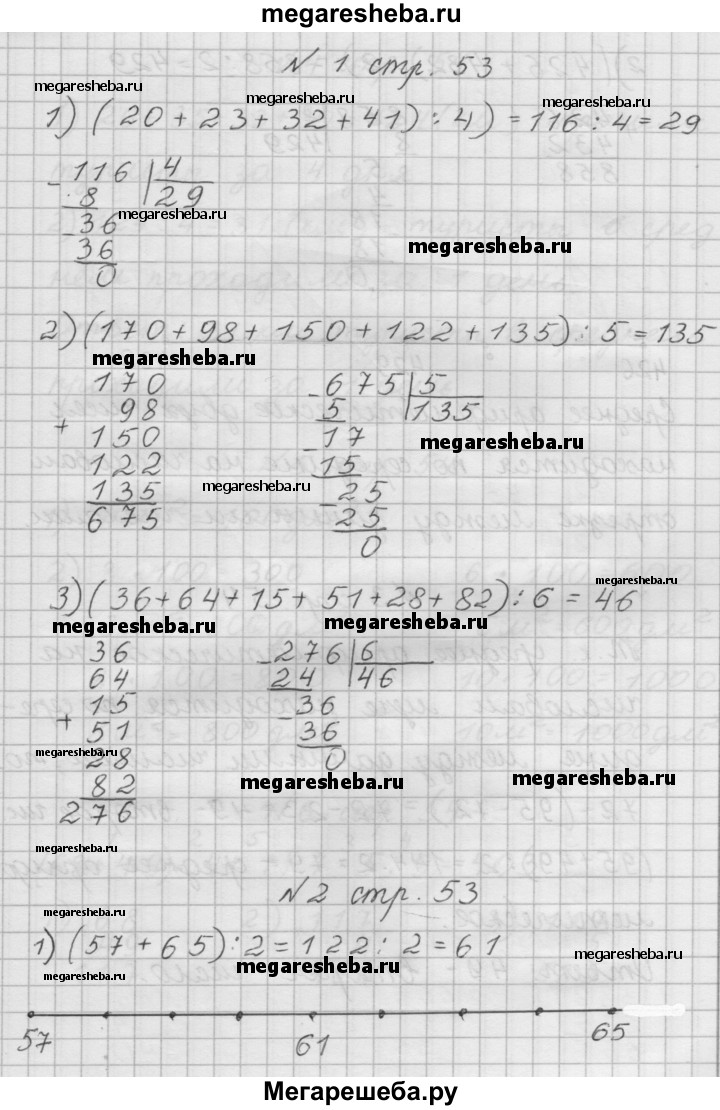 megaresheba.ru
N 1 стр. 53
megaresheba.ru megaresheba.ru megaresheba.ru
1) (20 + 23 + 32 + 41) : 4) = 116 : 4 = 29
- 116 | 4
8 | 29
megaresheba.ru
- 36
36
megaresheba.ru
0
2) (170 + 98 + 150 + 122 + 135) : 5 = 135
megaresheba.ru
170 - 675 | 5
98 5 | 135
+ 150 - 17
megaresheba.ru
122 15
135 - 25
megaresheba.ru
675 25
0
megaresheba.ru
3) (36 + 64 + 15 + 51 + 28 + 82) : 6 = 46
megaresheba.ru megaresheba.ru
36 - 276 | 6
64 24 | 46
15 - 36
+ 51 36
megaresheba.ru
28 0
82
megaresheba.ru megaresheba.ru
276
megaresheba.ru
N 2 стр. 53
megaresheba.ru
1) (57 + 65) : 2 = 122 : 2 = 61
megaresheba.ru megaresheba.ru megaresheba.ru
57 61 65
Мегарешеба.ру